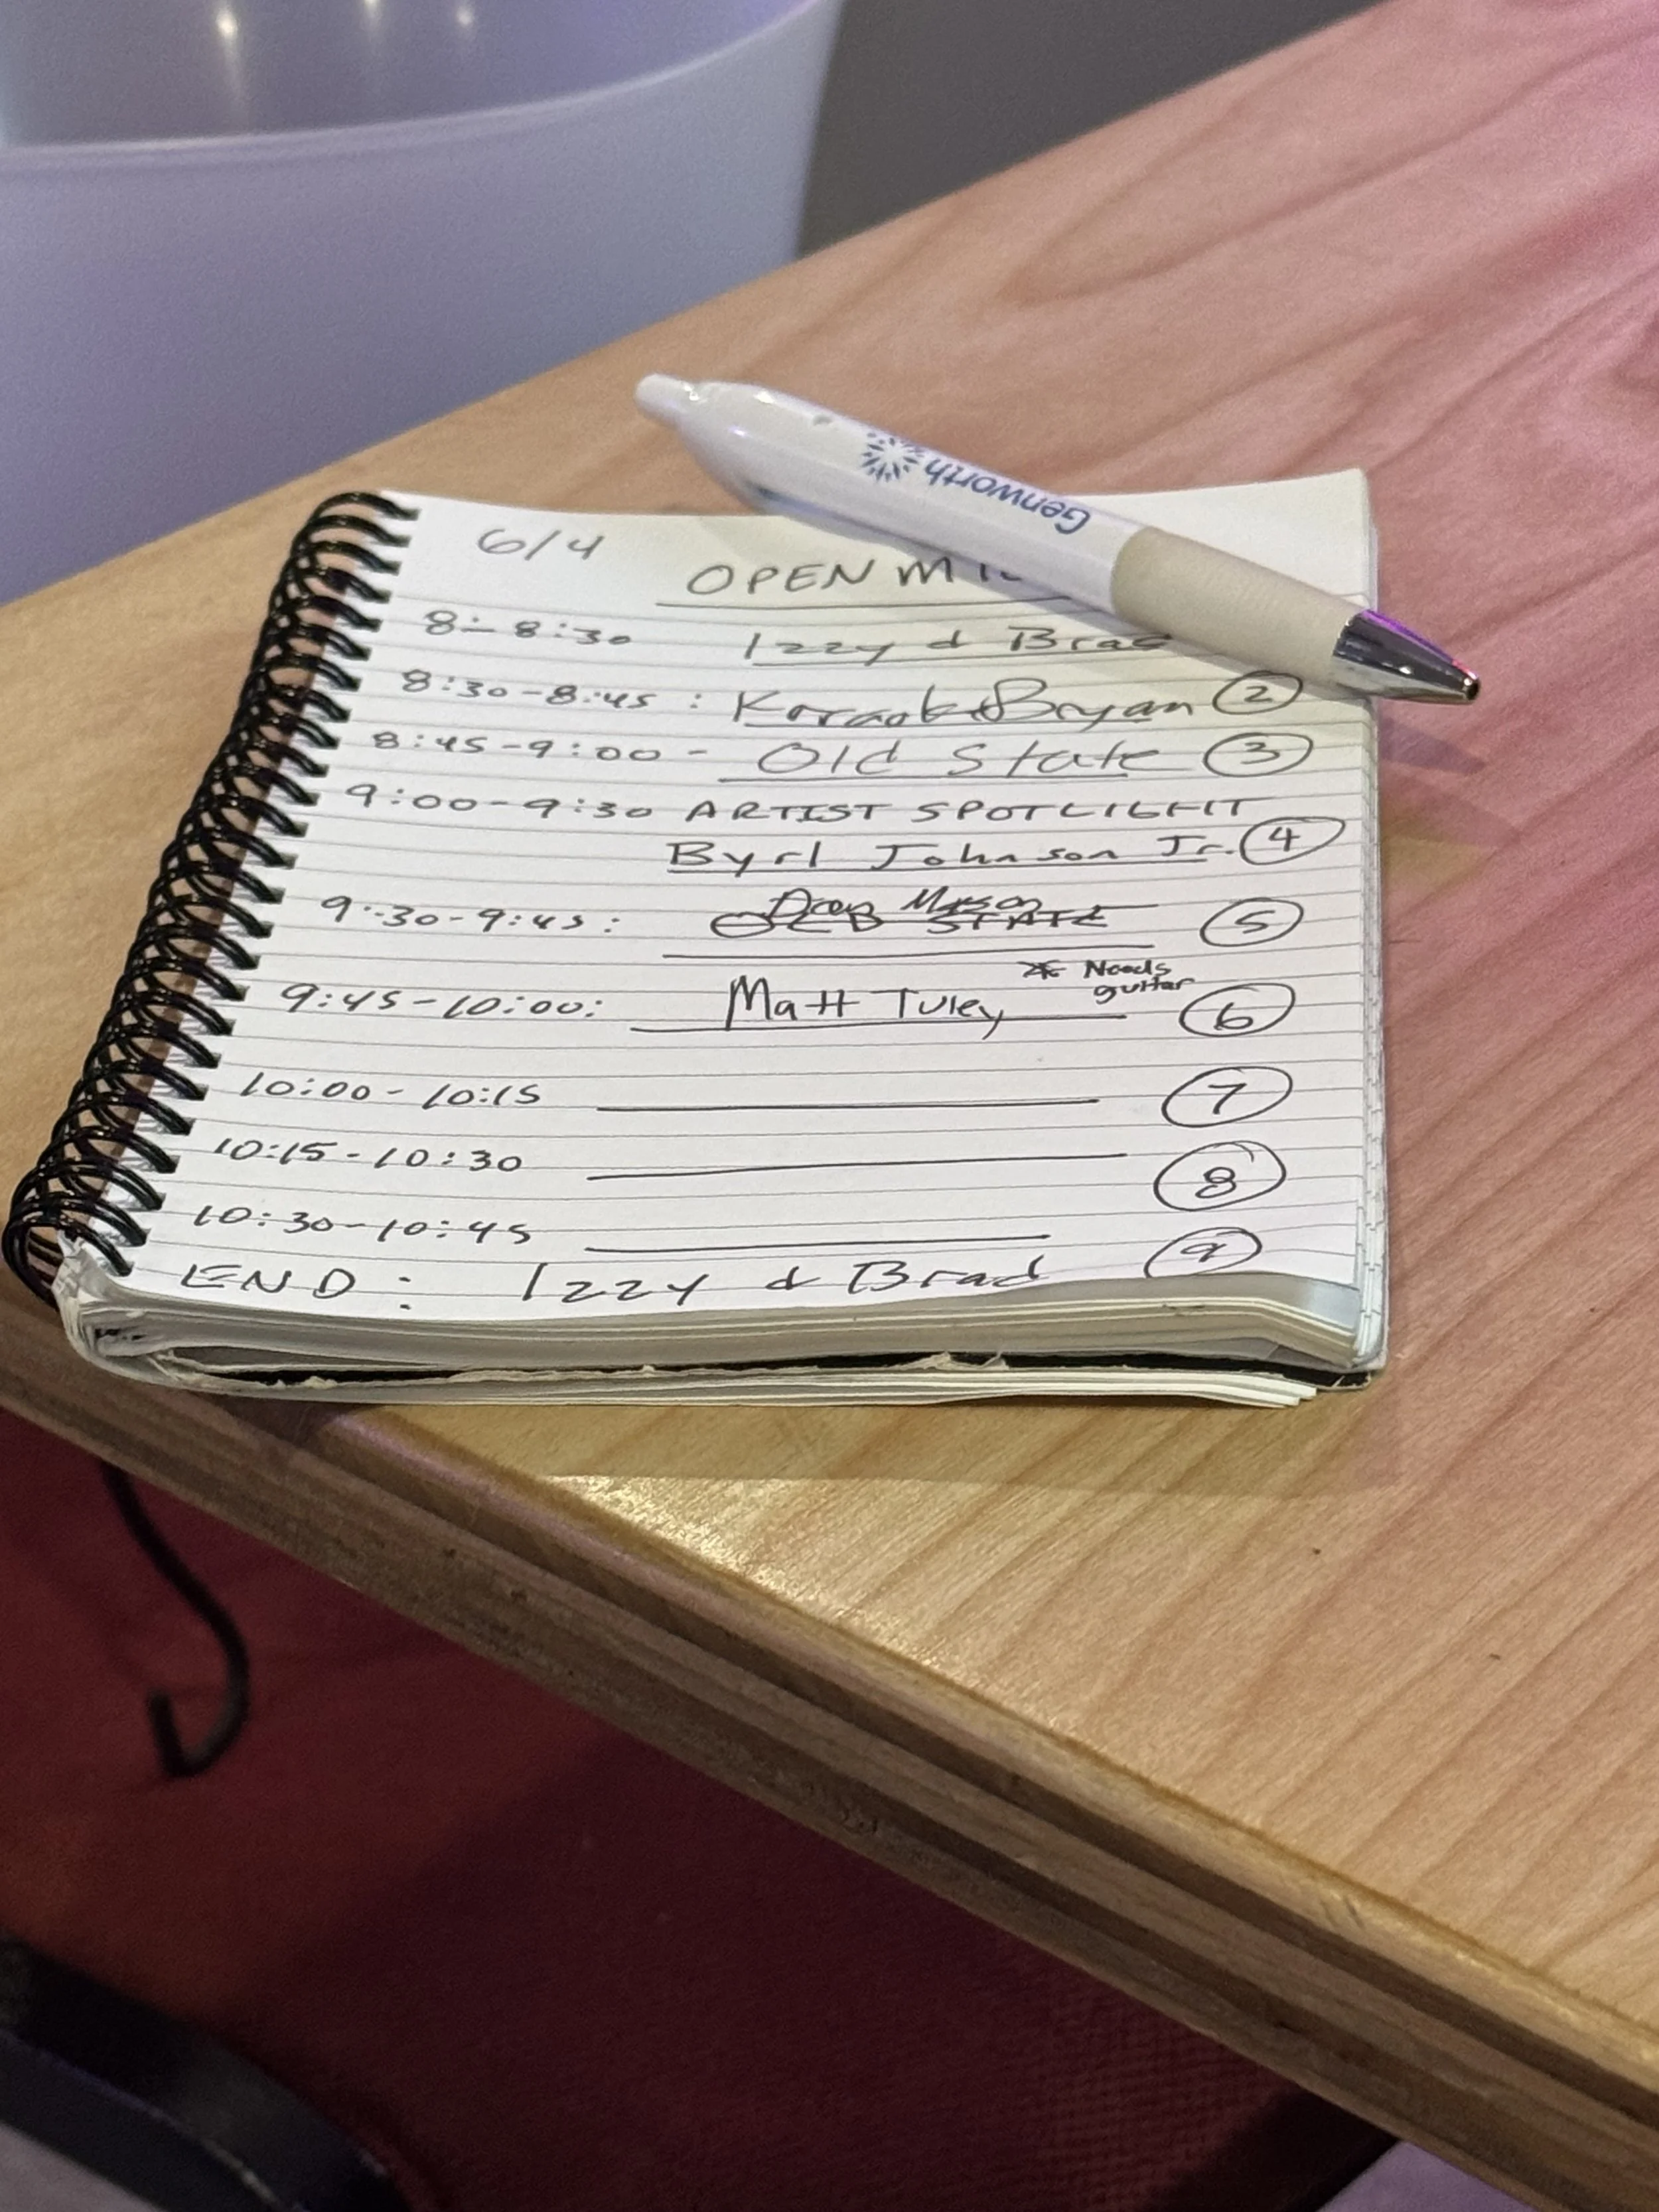 Genworth
6/4
OPEN MIC
8:- 8:30 Izzy & Brad
8:30-8:45 : Karaoke Bryan 2
8:45-9:00 - Old State 3
9:00-9:30 ARTIST SPOTLIGHT
Byrl Johnson Jr. 4
9:30-9:45: OLD STATE Mason 5
9:45-10:00: Matt Tuley * Needs guitar 6
10:00 - 10:15 7
10:15 - 10:30 8
10:30-10:45 9
END: Izzy & Brad